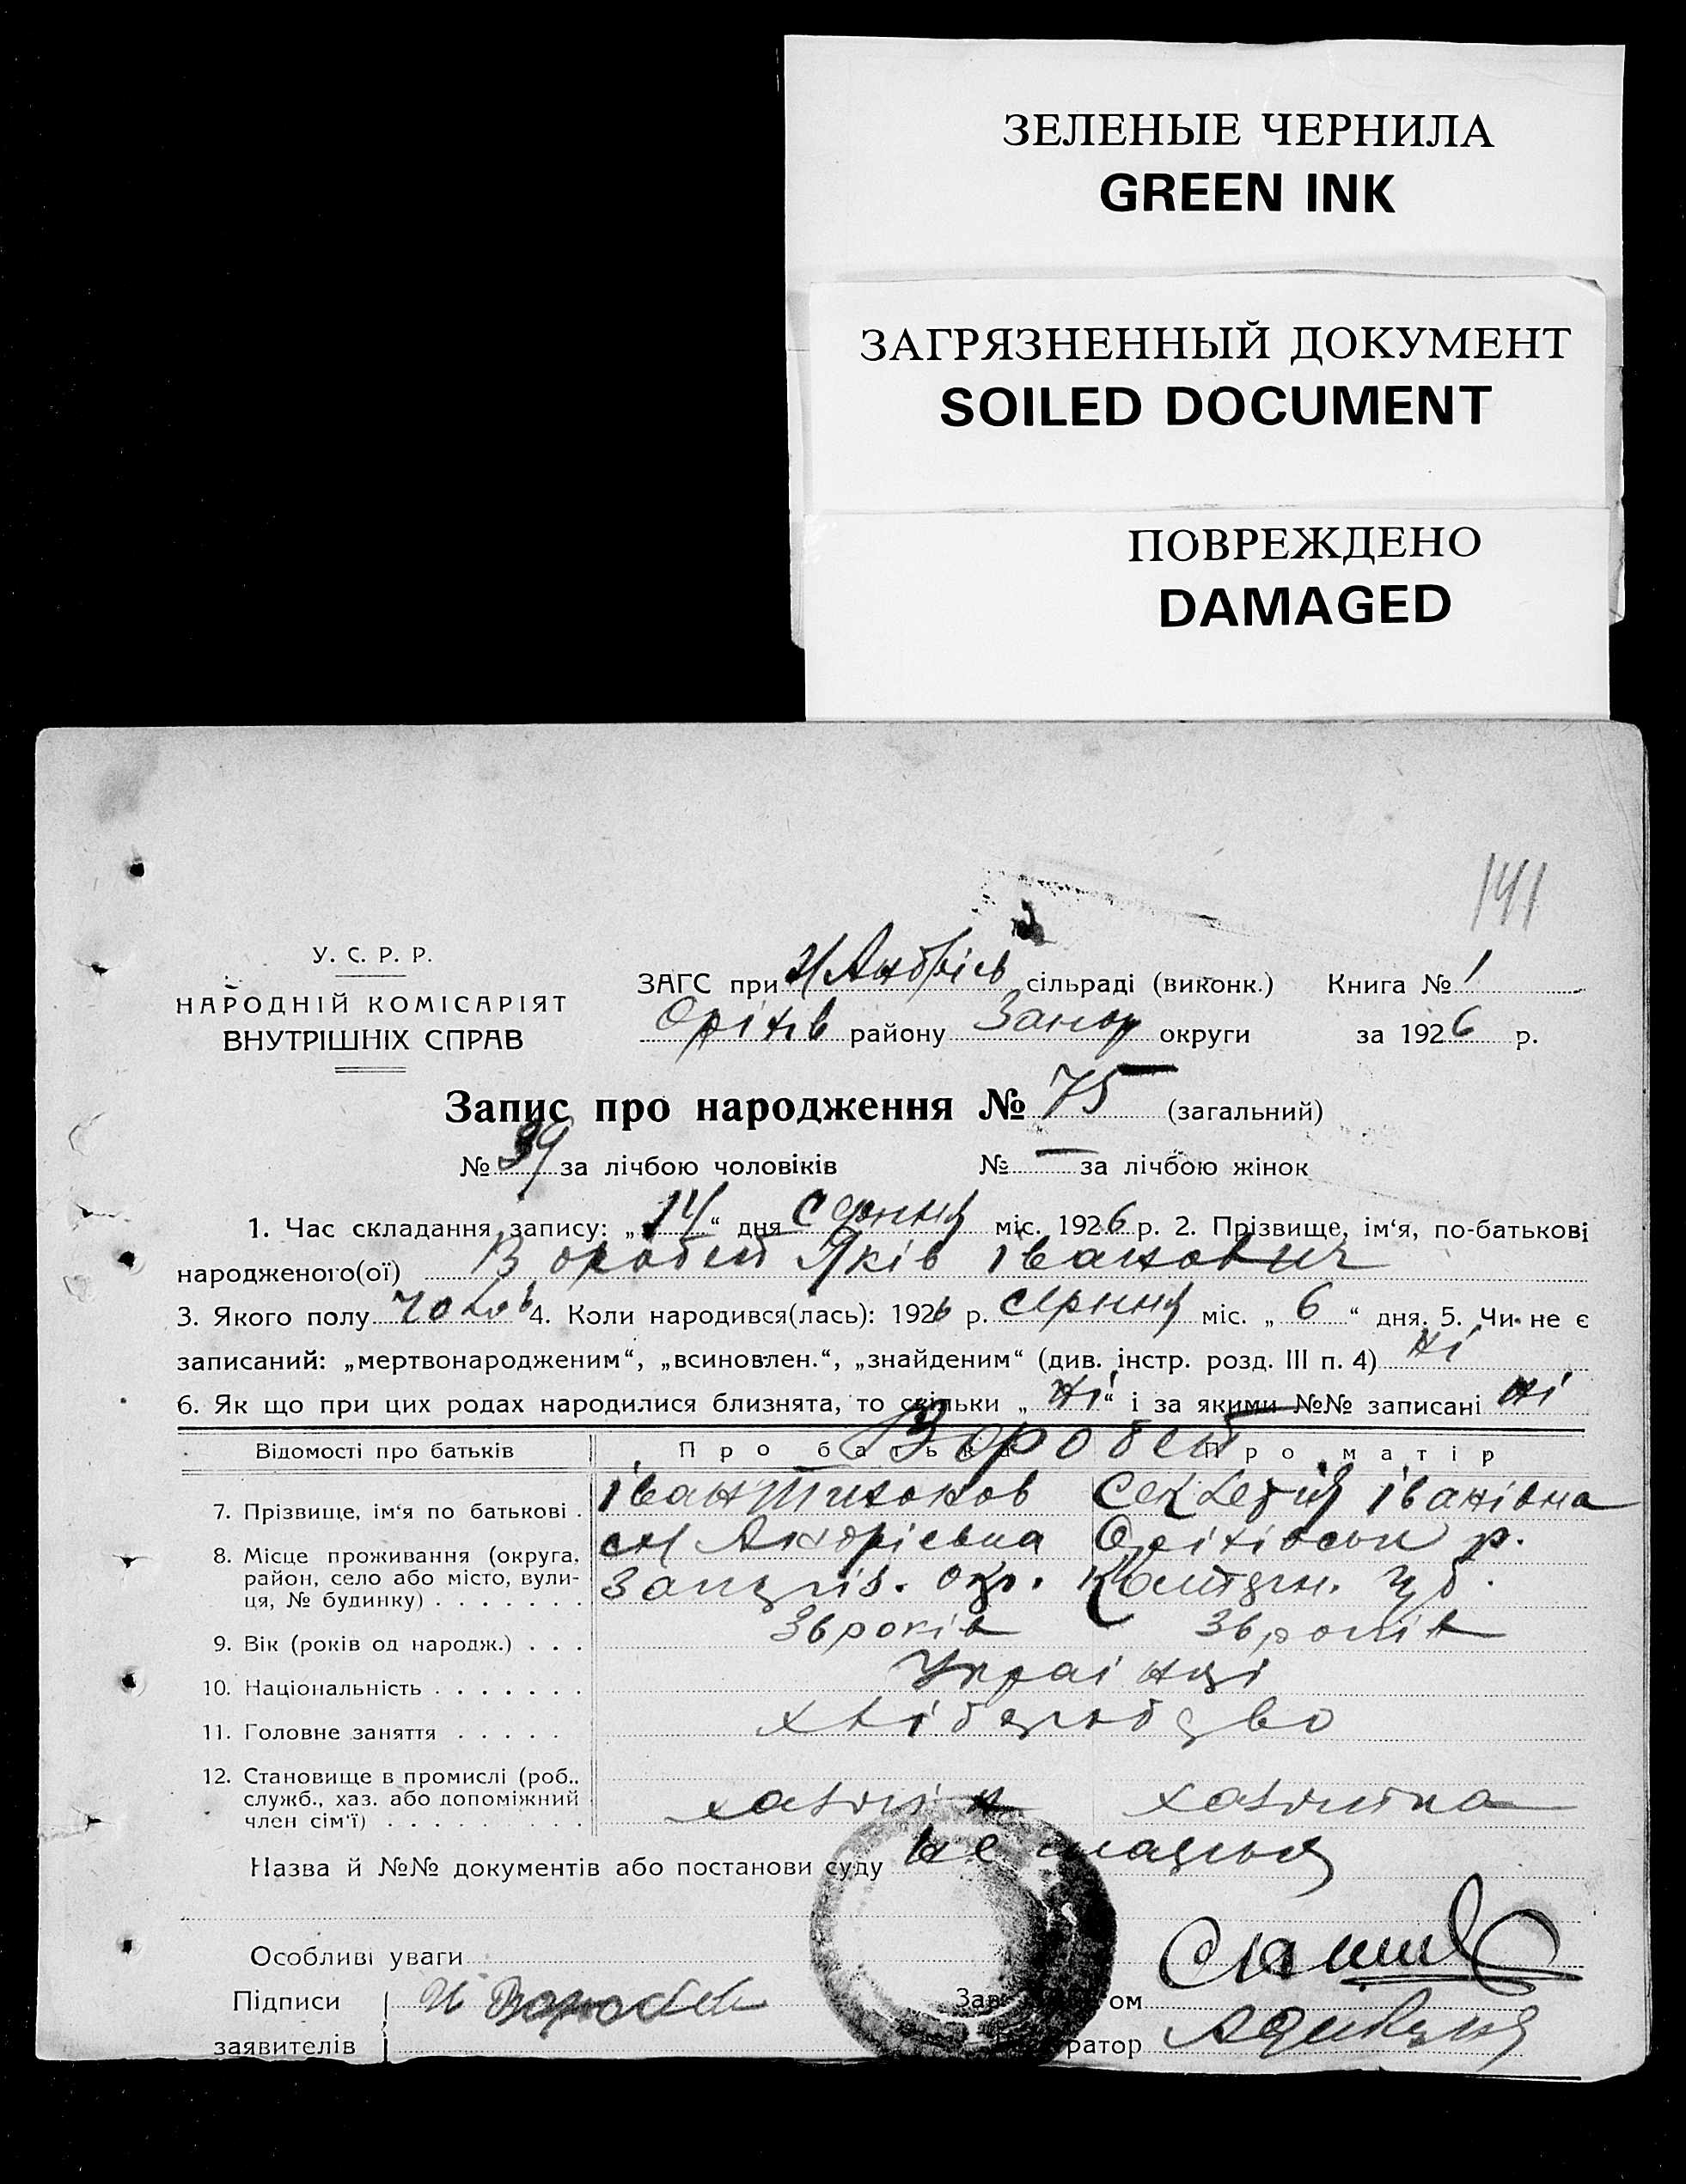 ЗЕЛЕНЫЕ ЧЕРНИЛА
GREEN INK
ЗАГРЯЗНЕННЫЙ ДОКУМЕНТ
SOILED DOCUMENT
ПОВРЕЖДЕНО
DAMAGED
141
У. С. Р. Р.
НАРОДНІЙ КОМІСАРІЯТ
ВНУТРІШНІХ СПРАВ
ЗАГС при Н Андрієв сільраді (виконк.) Книга № 1
Оріхів району Запор округи за 1926 р.
Запис про народження № 75 (загальний)
№ 39 за лічбою чоловіків № — за лічбою жінок
1. Час складання запису: „14“ дня Серпня міс. 1926 р. 2. Прізвище, ім'я, по-батькові
народженого(ої) Воробей Яків Іванович
3. Якого полу чолов 4. Коли народився(лась): 1926 р. серпня міс. „6“ дня. 5. Чи не є
записаний: „мертвонародженим“, „всиновлен.“, „знайденим“ (див. інстр. розд. III п. 4) ні
6. Як що при цих родах народилися близнята, то скільки „ні“ і за якими №№ записані ні
Відомості про батьків Про батька Воробей Про матір
7. Прізвище, ім'я по батькові . Іван Тихонов Секлетия Іванівна
8. Місце проживання (округа, с Н Андрієвка Оріхівськ р.
район, село або місто, вули- Запоріз. окр.
ця, № будинку) . . . . . . .
9. Вік (років од народж.) . . . 36 років 36 років
10. Національність . . . . . . . Українці
11. Головне заняття . . . . . хліборобство
12. Становище в промислі (роб.,
служб., хаз. або допоміжний хазяїн хазяйка
член сім'ї) . . . . . . . . .
Назва й №№ документів або постанови суду не
Особливі уваги
Підписи И Воробей Зав ом
заявителів ратор